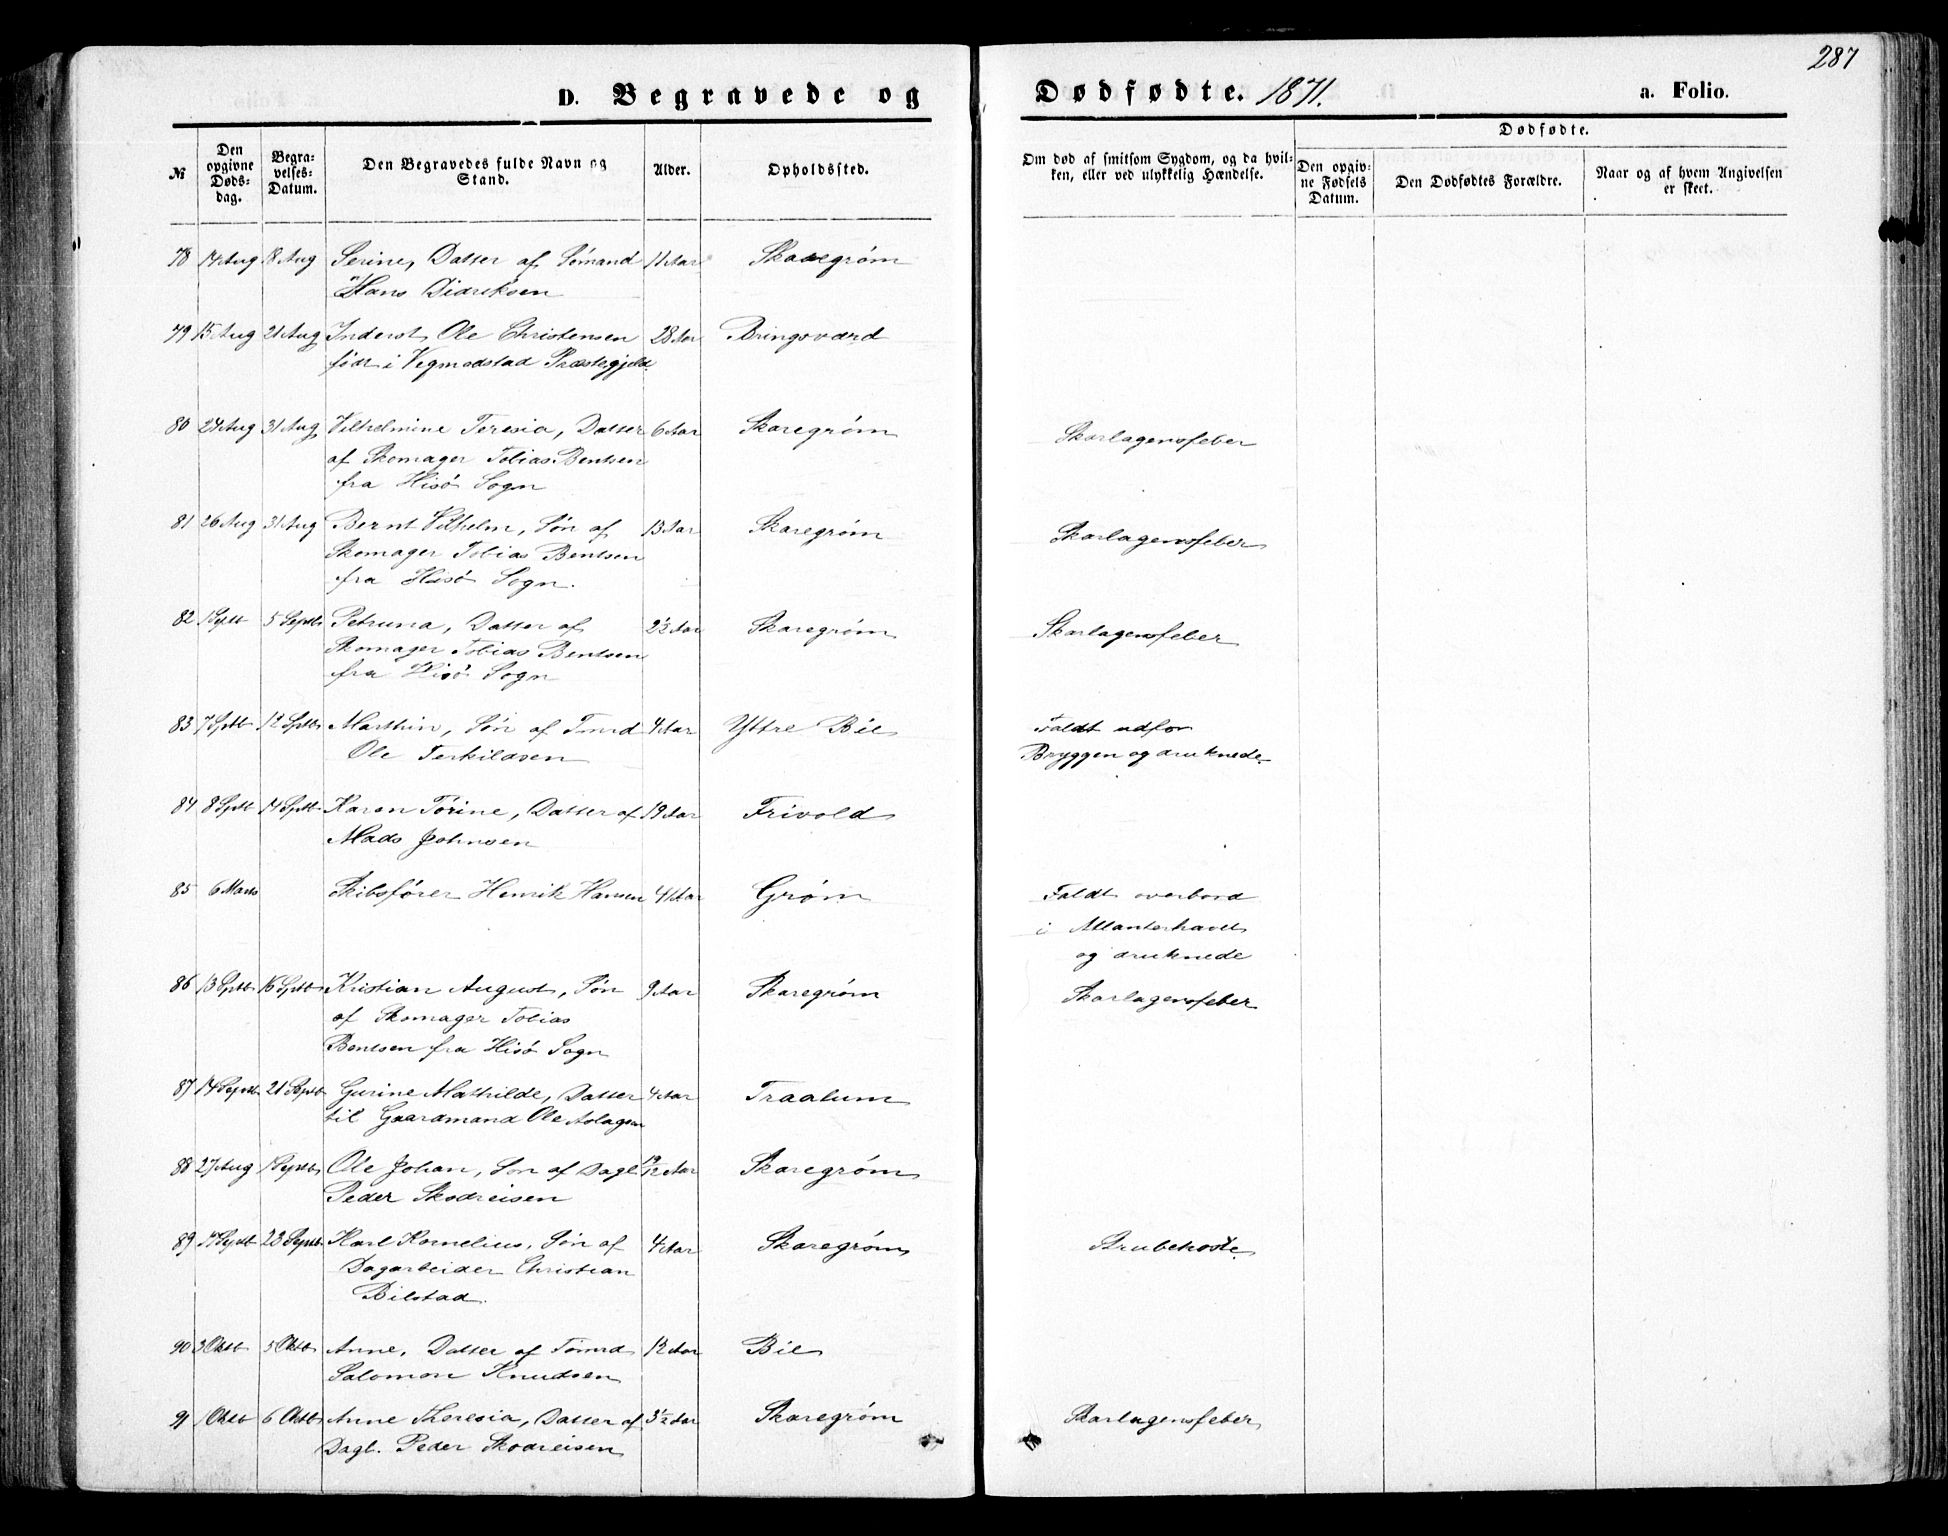 287
D. Begravede og Dødfødte. 1871. a. Folio.
Dødfødte.
№
Den opgivne Døds-dag.
Begra-velses-Datum.
Den Begravedes fulde Navn og Stand.
Alder.
Opholdssted.
Om død af smitsom Sygdom, og da hvil-
ken, eller ved ulykkelig Hændelse.
Den opgiv-
ne Fødsels
Datum.
Den Dødfødtes Forældre.
Naar og af hvem Angivelsen
er skeet.
78 14 Aug 18 Aug Serine, Datter af Sömand 11 Aar Skaregrøm
Hans Didriksen
79 15 Aug 21 Aug Inderst Ole Christensen 28 Aar Bringsværd
födt i Vegmodstad Præstegjeld.
80 24 Aug 31 Aug Vilhelmine Teresia, Datter 6 Aar Skaregrøm Skarlagensfeber
af Skomager Tobias Bentsen
fra Hisö Sogn
81 26 Aug 31 Aug Bernt Vilhelm, Sön af 13 Aar Skaregrøm Skarlagensfeber
Skomager Tobias Bentsen
fra Hisö Sogn.
82 1 Septb 5 Septb Petruna, Datter af 2½ Aar Skaregrøm Skarlagensfeber
Skomager Tobias Bentsen
fra Hisö Sogn
83 7 Sptb 12 Sptb Marthin, Sön af Tmrd 4 Aar Yttre Bie Faldt udfor
Ole Terkildsen Bryggen og druknede
84 8 Sptb 14 Sptb Karen Törine, Datter af 19 Aar Frivold
Mads Johnsen
85 6 Marts Skibsförer Henrik Hansen 41 Aar Grøm Faldt overbord
i Atlanterhavet
og druknede
86 13 Sptb 16 Sptb Kristian August, Sön 9 Aar Skaregrøm Skarlagensfeber
af Skomager Tobias
Bentsen fra Hisö Sogn
87 14 Septb 21 Septb Gurine Mathilde, Datter 4 Aar Traalum
til Gaardmand Ole Aslagsen
88 27 Aug 1 Septb Ole Johan, Sön af Dagl. Aar Skaregrøm
Peder Skodreisen
89 17 Septb 23 Septb Karl Kornelius, Sön af 4 Aar Skaregrøm Strubehoste
Dagarbeider Christian
Bilstad.
90 3 Oktb 5 Oktb Anne, Datter af Tömrd 12 Aar Bie
Salomon Knudsen
91 1 Oktb 6 Oktb Anne Theresia, Datter af 3½ Aar Skaregrøm Skarlagensfeber
Dagl. Peder Skodreisen